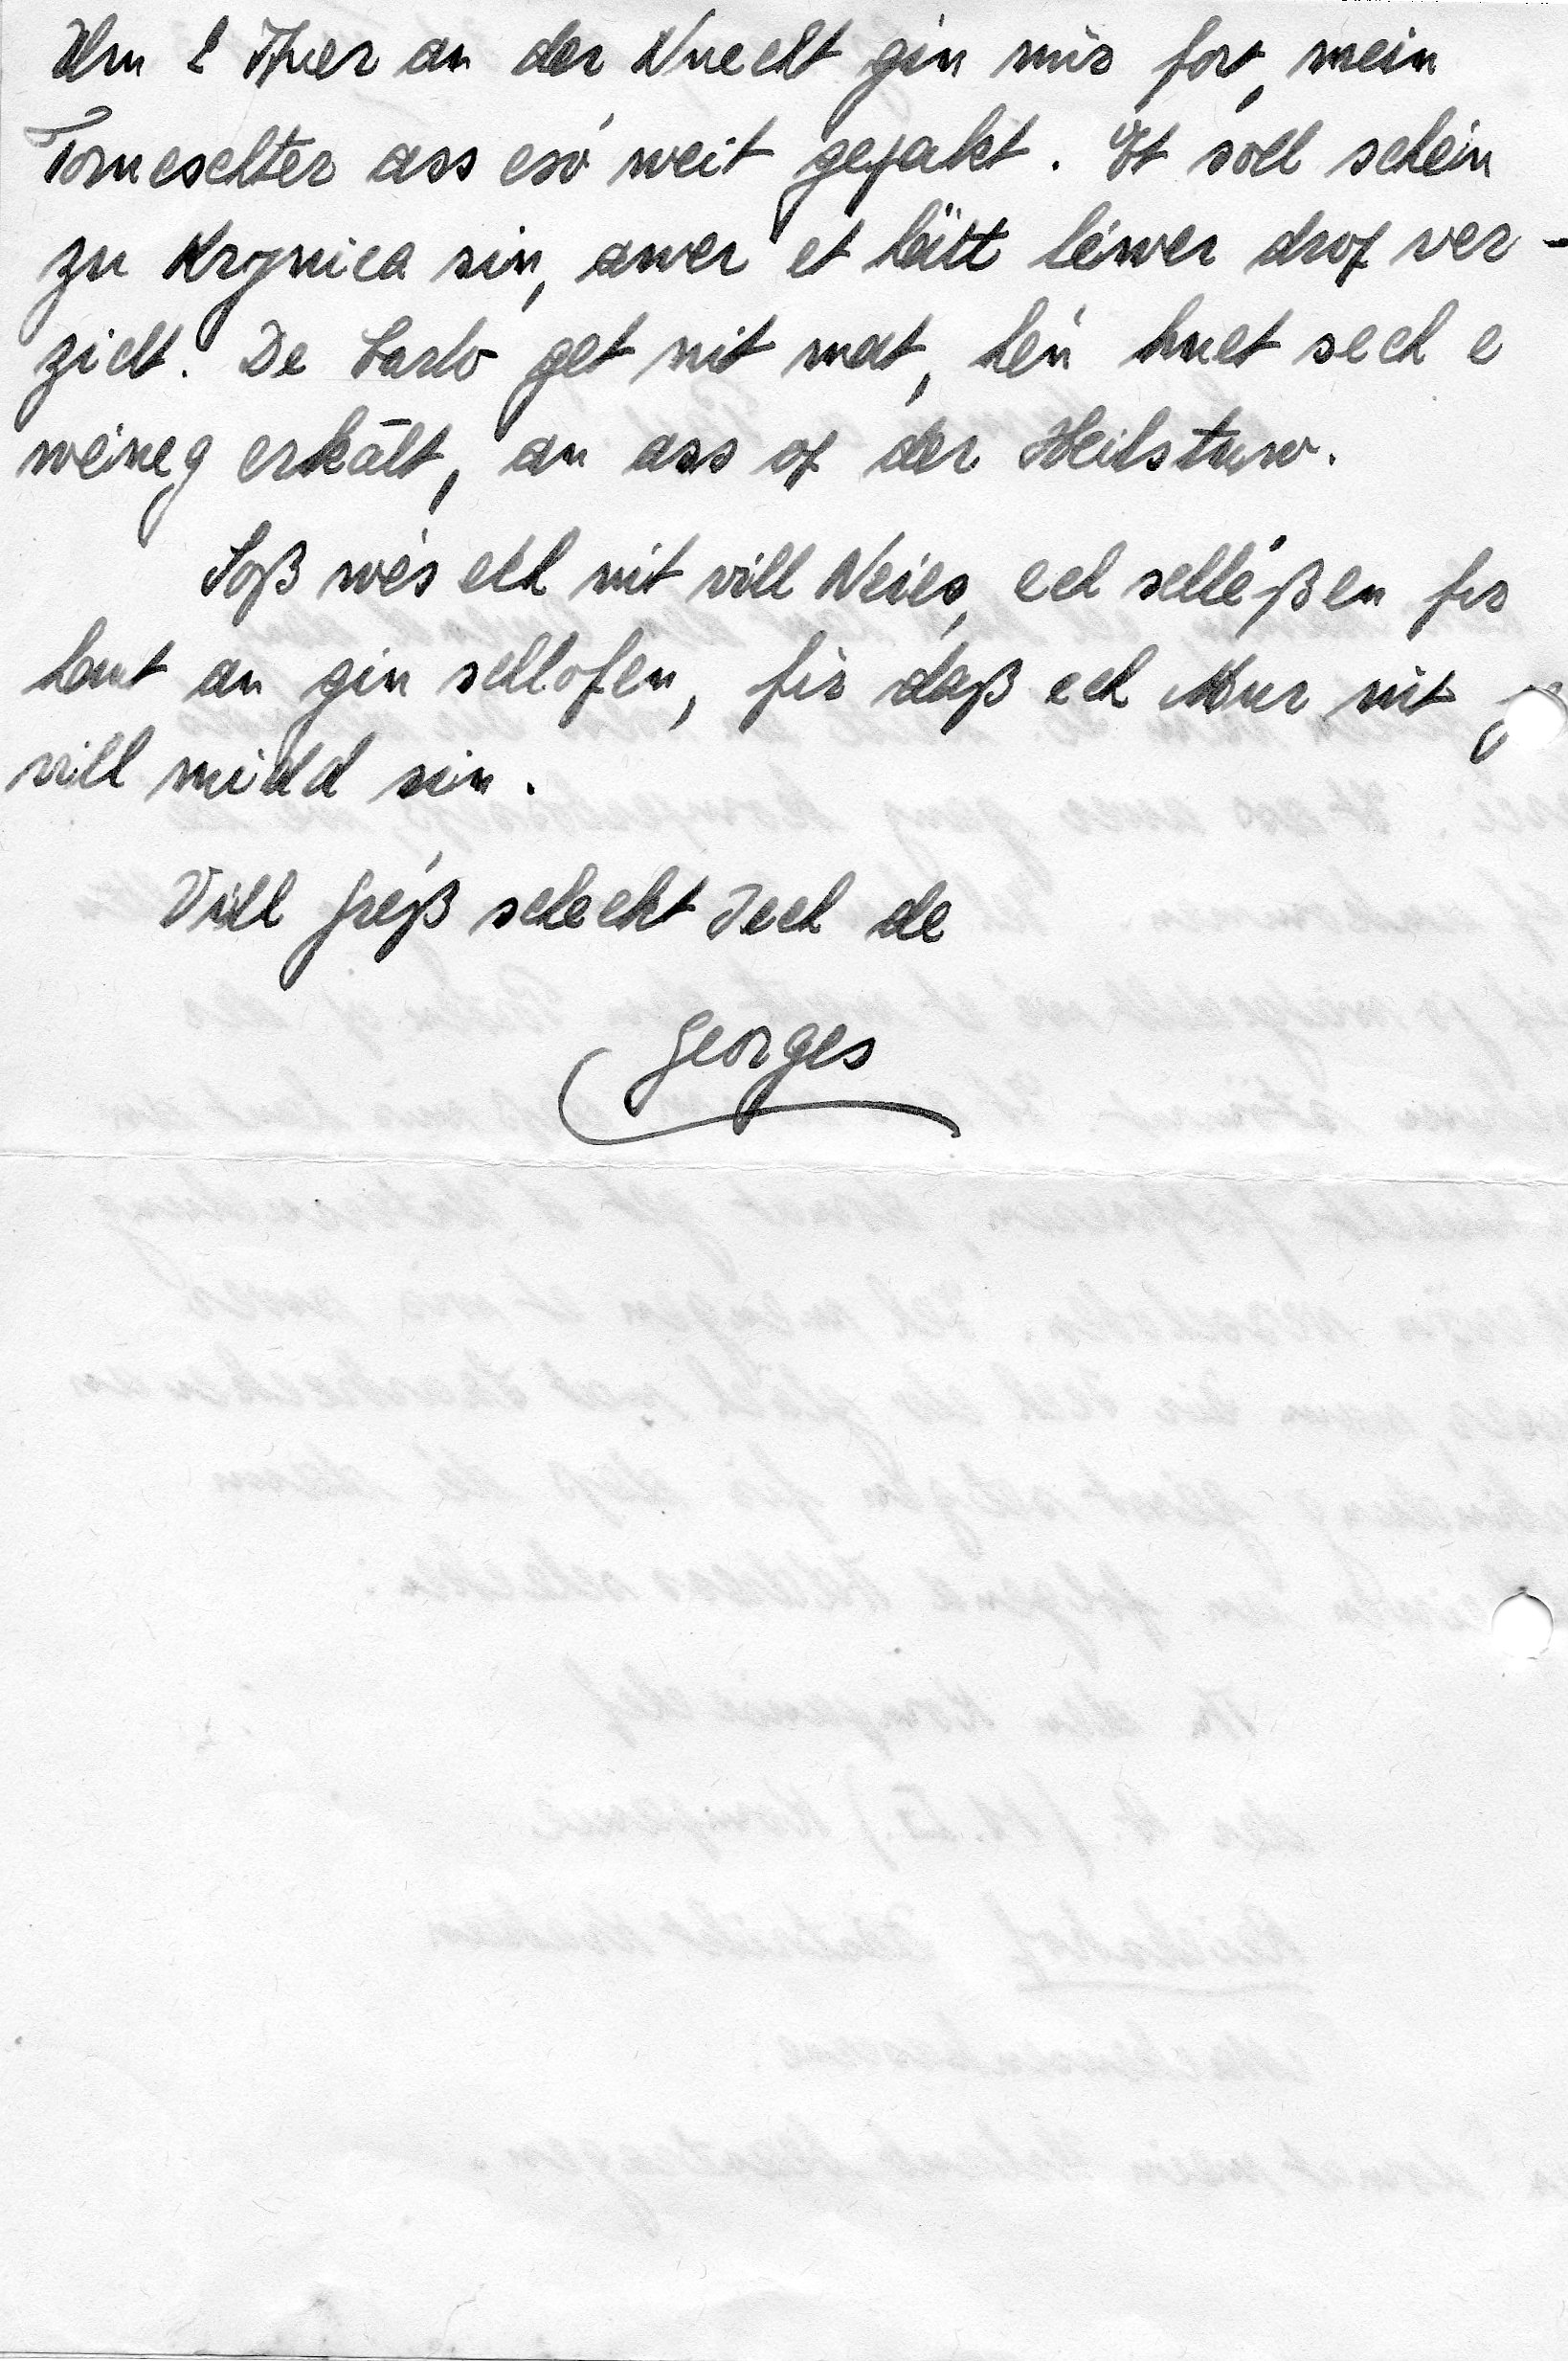 Um 2 Auer an der Nuecht gin mir fort, mein
Torneschter ass esó weit gepakt. Et soll schéin
zu Krynica sin, awer et hätt léiwer drop ver-
zicht. De Carlo get nit mat, hén huet sech e
wéineg erkält, an ass op der Heilstuw.
Soß wés ech nit vill Neies, ech schléßen fir
haut an gin schlofen, fir daß ech Muer nit
vill midd sin.
Vill Gréß schéckt Iech de
Georges